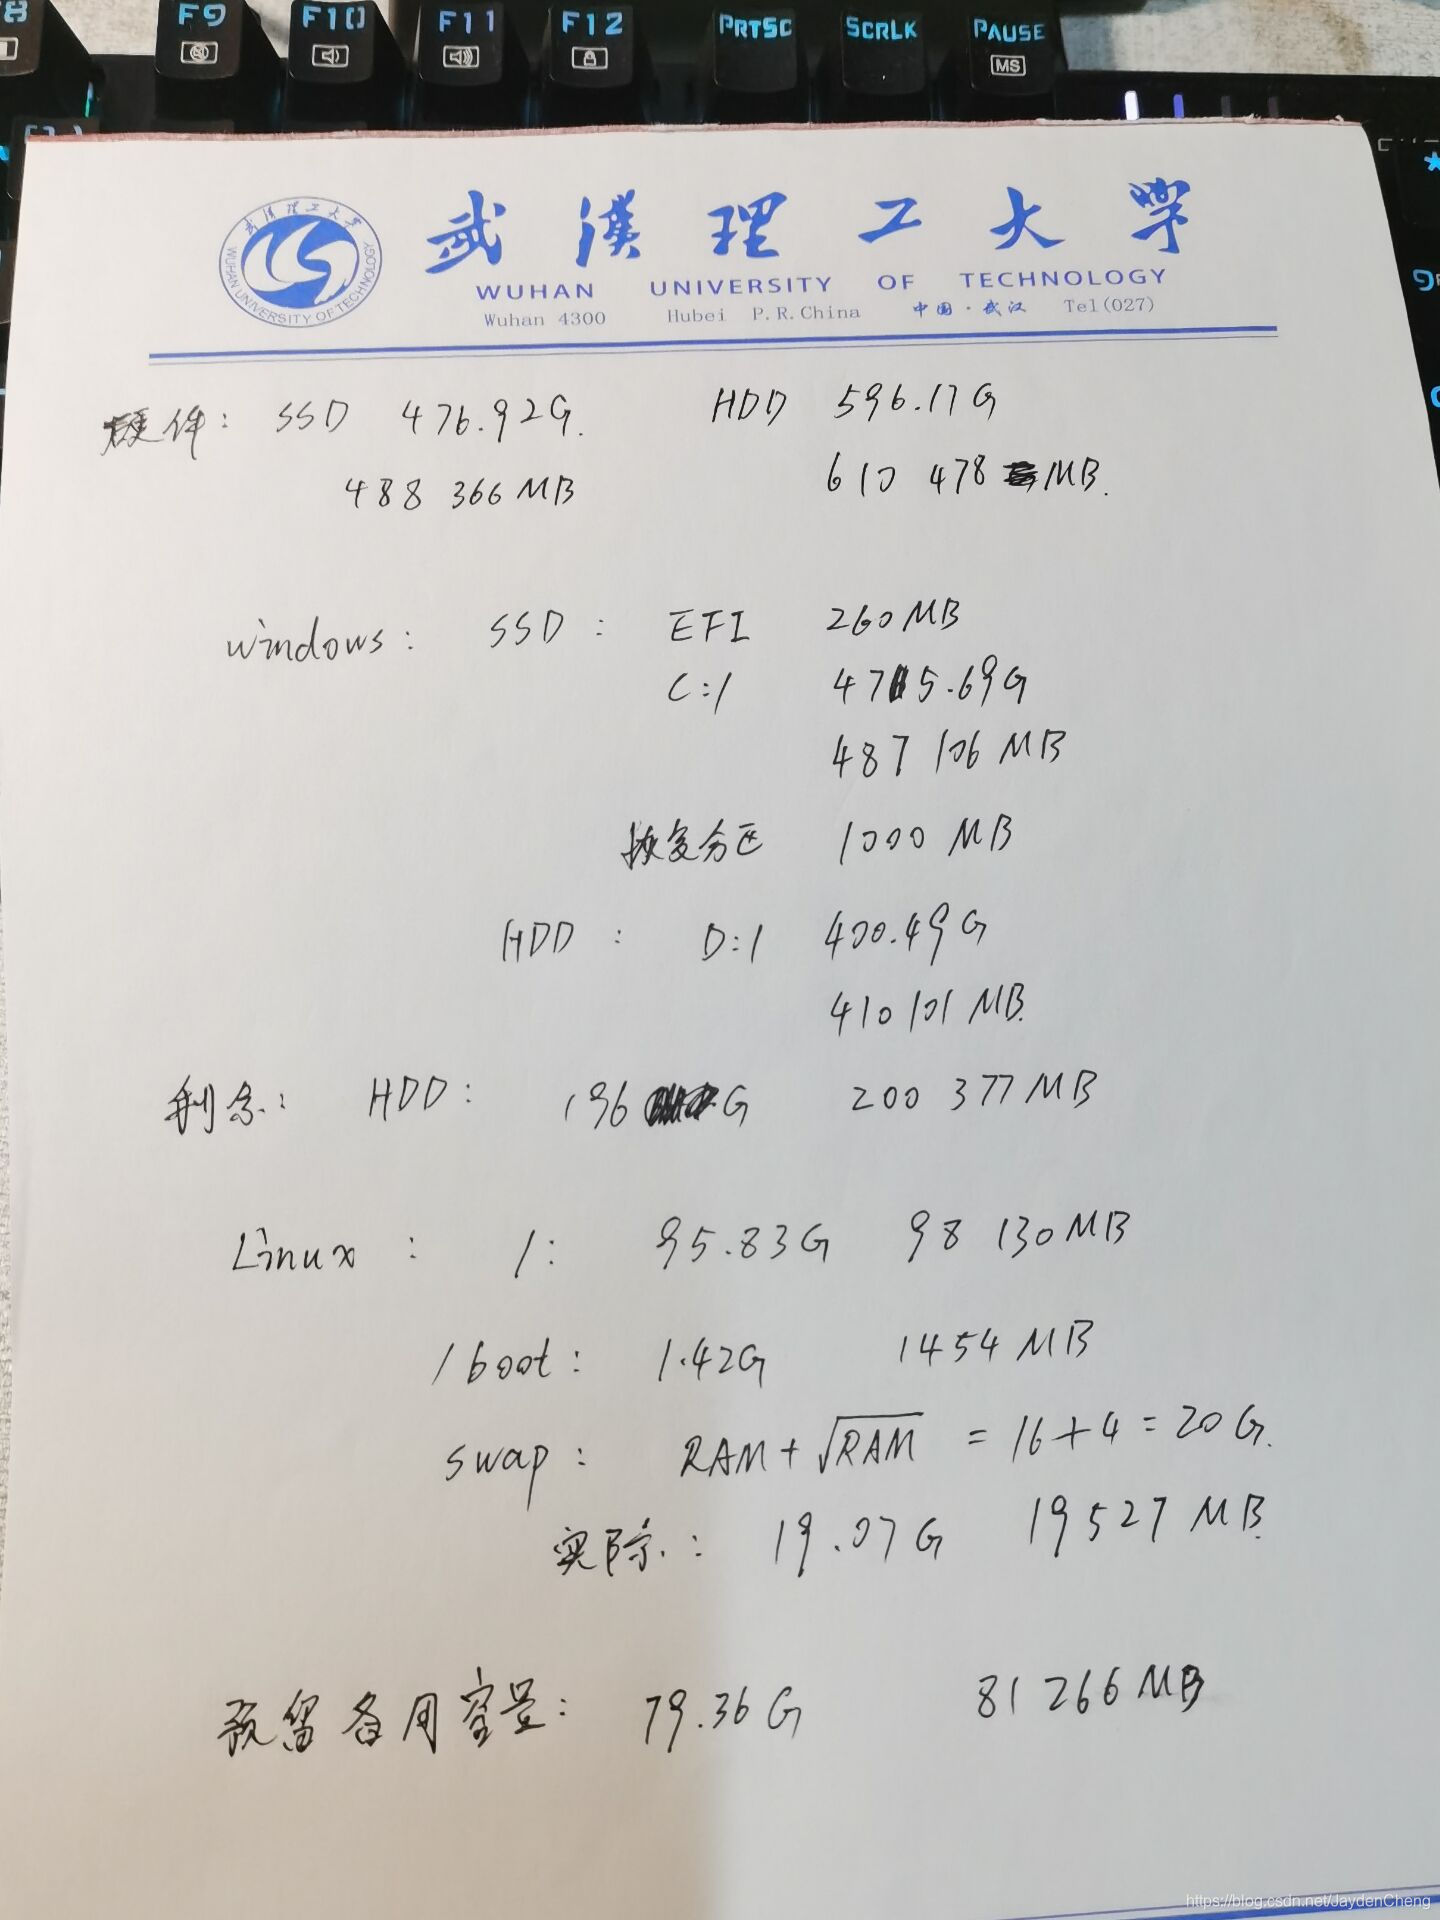 F9 F10 F11 F12 PRTSC SCRLK PAUSE
MS
武漢理工大學
WUHAN UNIVERSITY OF TECHNOLOGY
Wuhan 4300 Hubei P.R.China 中国·武汉 Tel(027)
武漢理工大學
WUHAN UNIVERSITY OF TECHNOLOGY
硬件: SSD 476.92G. HDD 596.17G
488 366 MB 610 478 MB.
windows: SSD: EFI 260MB
C:/ 475.69G
487 106 MB
恢复分区 1000 MB
HDD: D:/ 400.49G
410 101 MB.
剩余: HDD: 196 G 200 377 MB
Linux: /: 95.83G 98 130 MB
/boot: 1.42G 1454 MB
swap: RAM+√RAM = 16+4=20G.
实际: 19.07G 19527 MB.
预留备用容量: 79.36G 81 266 MB
https://blog.csdn.net/JaydenCheng